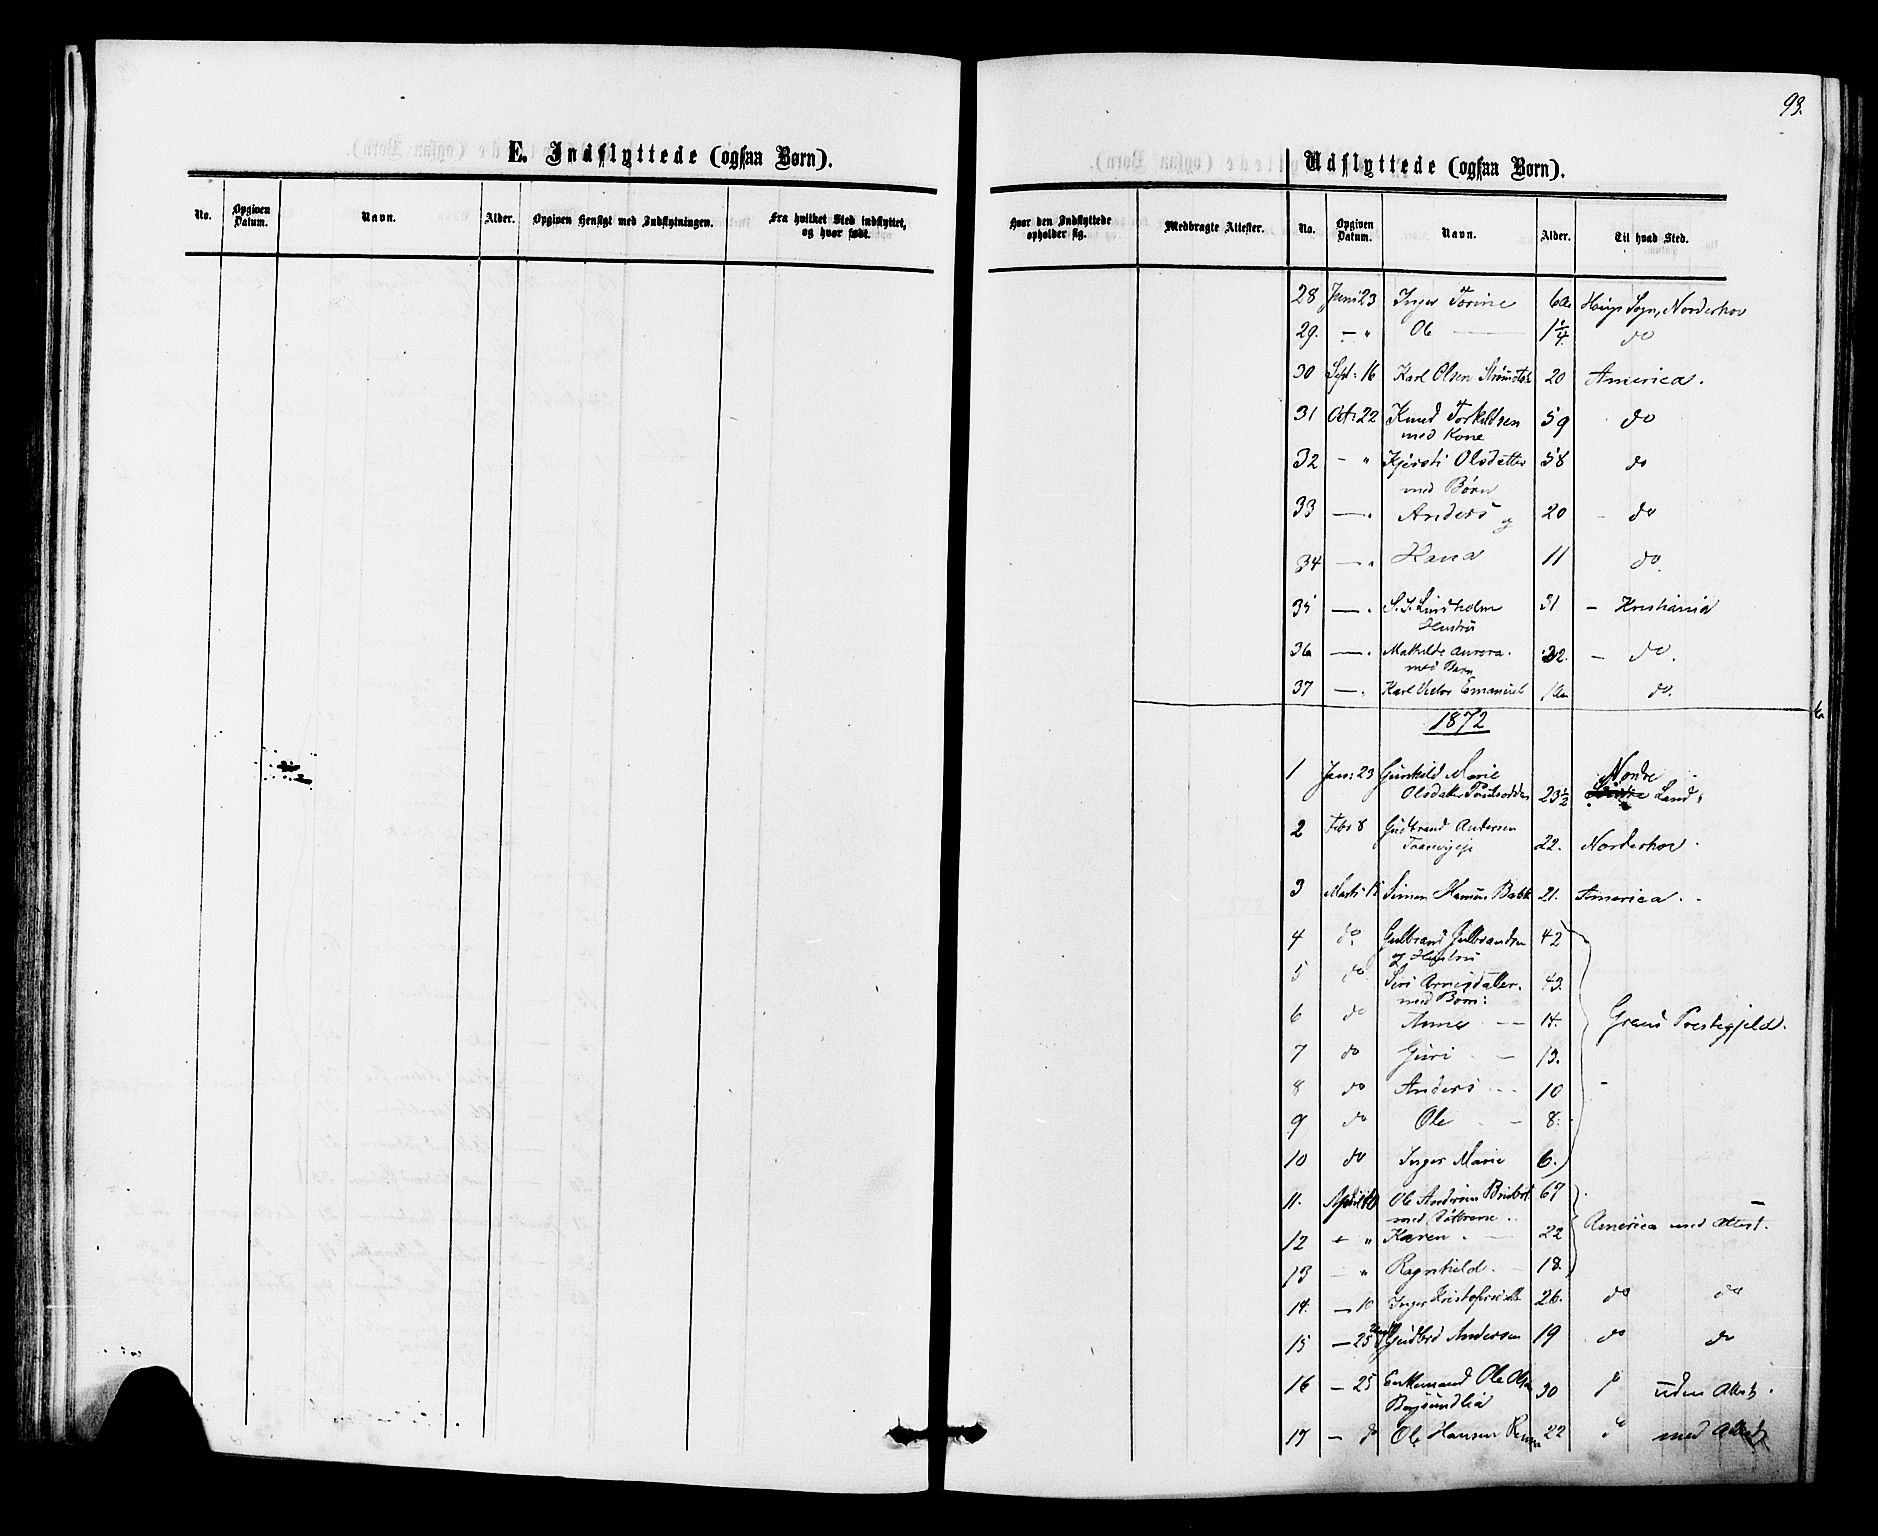 93.
E. Indflyttede (ogsaa Børn).
No. Opgiven Datum. Navn. Alder. Opgiven Hensigt med Indflytningen. Fra hvilket Sted indflyttet, og hvor født.
Udflyttede (ogsaa Børn).
Hvor den Indflyttede opholder sig. Medbragte Attester. No. Opgiven Datum. Navn. Alder. Til hvad Sted.
28 Juni 23 Inger Torine Sogn, Norderhov
29. — " Ole — 1 1/4 do
30 Sept: 16 Karl Olsen 20 America.
31 Oct: 22 Knud Torkildsen 59 do
med Kone
32 - " Kjersti Olsdatter 58 do
med Børn
33 — " Anders og 20 - do
34 — " Hana 11 do.
35 — " Lindholm 31 - Kristiania
Hustru
36 — " Mathilde Aurora. 32. - do.
med Barn
37 — " Karl Victor Emanuel do.
1872
1 Jan: 23 Gunhild Marie Nordre
Olsdatter 23 1/2 Land.
2 Febr 8 Gudbrand Andersen
22. Norderhov.
3 Marts 15 Simen Hansen 21. America.
4 do. Gulbrand Gulbrandsen 42
og Hustru
5 do Siri Arnesdatter. 43.
med Born:
6 do Anne — 14. Grans Prestegjeld.
7 do Guri — 13.
8 do Anders — 10
9 do Ole — 8.
10 do Inger Marie 6.
11. April 10 Ole Andersen 67
med Døttrene America med Attest.
12 - " Karen — 22
13 - " Ragnhild. — 18.
14. — 10 Inger 26. do do
15 — 25 Gudbrd Andersen 19 do do
16 — 25 Enkemand Ole Olsen 30 do uden Attest.
17 — do Ole Hansen 22 do med Attest